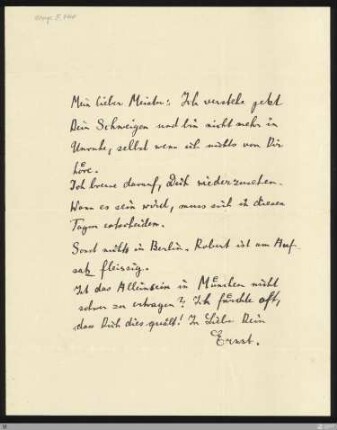 Mein lieber Meister: Ich verstehe jetzt
Dein Schweigen und bin nicht mehr in
Unruhe, selbst wenn ich nichts von Dir
höre.
Ich brenne darauf, Dich wiederzusehen.
Wann es sein wird, muss sich in diesen
Tagen entscheiden.
Sonst nichts in Berlin. Robert ist am Auf-
satz fleissig.
Ist das Alleinsein in München nicht
schwer zu ertragen? Ich fürchte oft,
dass Dich dies quält! In Liebe Dein
Ernst.